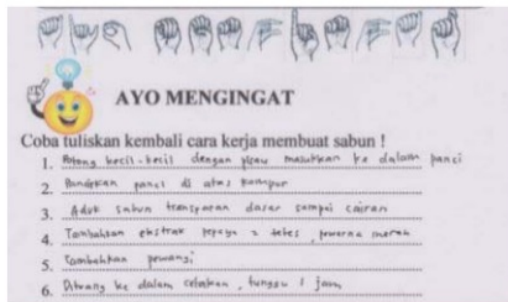 AYO MENGINGAT
Coba tuliskan kembali cara kerja membuat sabun !
1. Potong kecil-kecil dengan pisau masukkan ke dalam panci
2. panci di atas kompor
3. Aduk sabun transparan dasar sampai cairan
4. Tambahkan ekstrak pepaya 2 tetes, pewarna merah
5. Tambahkan pewangi
6. Dituang ke dalam cetakan, tunggu 1 jam